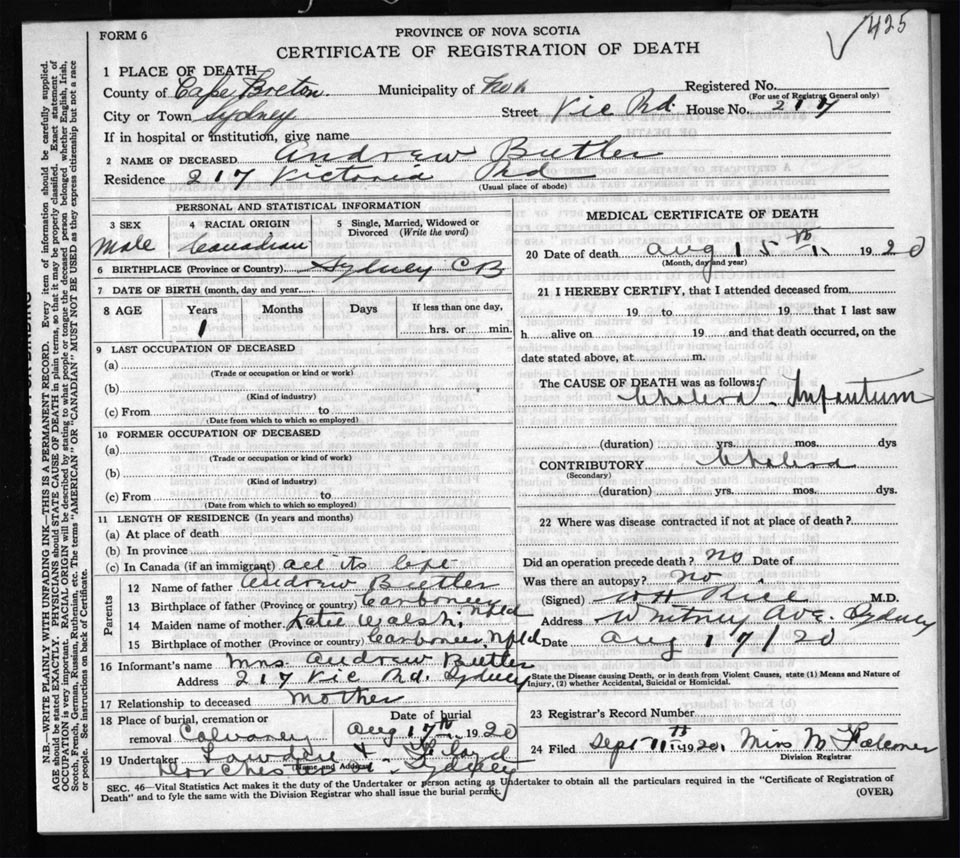 425
FORM 6
PROVINCE OF NOVA SCOTIA
CERTIFICATE OF REGISTRATION OF DEATH
1 PLACE OF DEATH
County of Cape Breton. Municipality of Registered No.
(For use of Registrar General only)
City or Town Sydney Street Vic Rd. House No. 217
If in hospital or institution, give name
2 NAME OF DECEASED Andrew Butler
Residence 217 Victoria Rd
(Usual place of abode)
PERSONAL AND STATISTICAL INFORMATION
3 SEX 4 RACIAL ORIGIN 5 Single, Married, Widowed or Divorced (Write the word)
Male Canadian
6 BIRTHPLACE (Province or Country) Sydney CB
7 DATE OF BIRTH (month, day and year)
8 AGE Years Months Days If less than one day,
1 hrs. or min.
9 LAST OCCUPATION OF DECEASED
(a)
(Trade or occupation or kind of work)
(b)
(Kind of industry)
(c) From to
(Date from which to which so employed)
10 FORMER OCCUPATION OF DECEASED
(a)
(Trade or occupation or kind of work)
(b)
(Kind of industry)
(c) From to
(Date from which to which so employed)
11 LENGTH OF RESIDENCE (In years and months)
(a) At place of death
(b) In province
(c) In Canada (if an immigrant) all its life
Parents
12 Name of father Andrew Butler
13 Birthplace of father (Province or country) Carbonear Nfld
14 Maiden name of mother Katie Walsh.
15 Birthplace of mother (Province or country) Carbonear, Nfld
16 Informant's name Mrs. Andrew Butler
Address 217 Vic Rd. Sydney
17 Relationship to deceased Mother
18 Place of burial, cremation or Date of burial
removal Calvary Aug 17th 1920
19 Undertaker
(Name and Address)
Dorchester St. Sydney
MEDICAL CERTIFICATE OF DEATH
20 Date of death Aug 15th 1920
(Month, day and year)
21 I HEREBY CERTIFY, that I attended deceased from
19 to 19 that I last saw
h alive on 19 and that death occurred, on the
date stated above, at m.
The CAUSE OF DEATH was as follows:
Cholera Infantum
(duration) yrs. mos. dys
CONTRIBUTORY Cholera
(Secondary)
(duration) yrs. mos. dys.
22 Where was disease contracted if not at place of death?
Did an operation precede death? No Date of
Was there an autopsy? No
(Signed) W H Rice M.D.
Address Whitney Ave. Sydney
Date Aug 17/20
State the Disease causing Death, or in death from Violent Causes, state (1) Means and Nature of
Injury, (2) whether Accidental, Suicidal or Homicidal.
23 Registrar's Record Number
24 Filed Sept 11th 1920, Miss M Falconer
Division Registrar
SEC. 46—Vital Statistics Act makes it the duty of the Undertaker or person acting as Undertaker to obtain all the particulars required in the "Certificate of Registration of
Death" and to fyle the same with the Division Registrar who shall issue the burial permit.
(OVER)
N.B.—WRITE PLAINLY WITH UNFADING INK—THIS IS A PERMANENT RECORD. Every item of information should be carefully supplied.
AGE should be stated EXACTLY. PHYSICIANS should STATE CAUSE OF DEATH in plain terms, so that it may be properly classified. Exact statement of
OCCUPATION is very important. RACIAL ORIGIN will be described by stating to what people or tongue the deceased person belonged whether English, Irish,
Scotch, French, German, Russian, Ruthenian, etc. The terms "AMERICAN" OR "CANADIAN" MUST NOT BE USED as they express citizenship but not a race
or people. See instructions on back of Certificate.